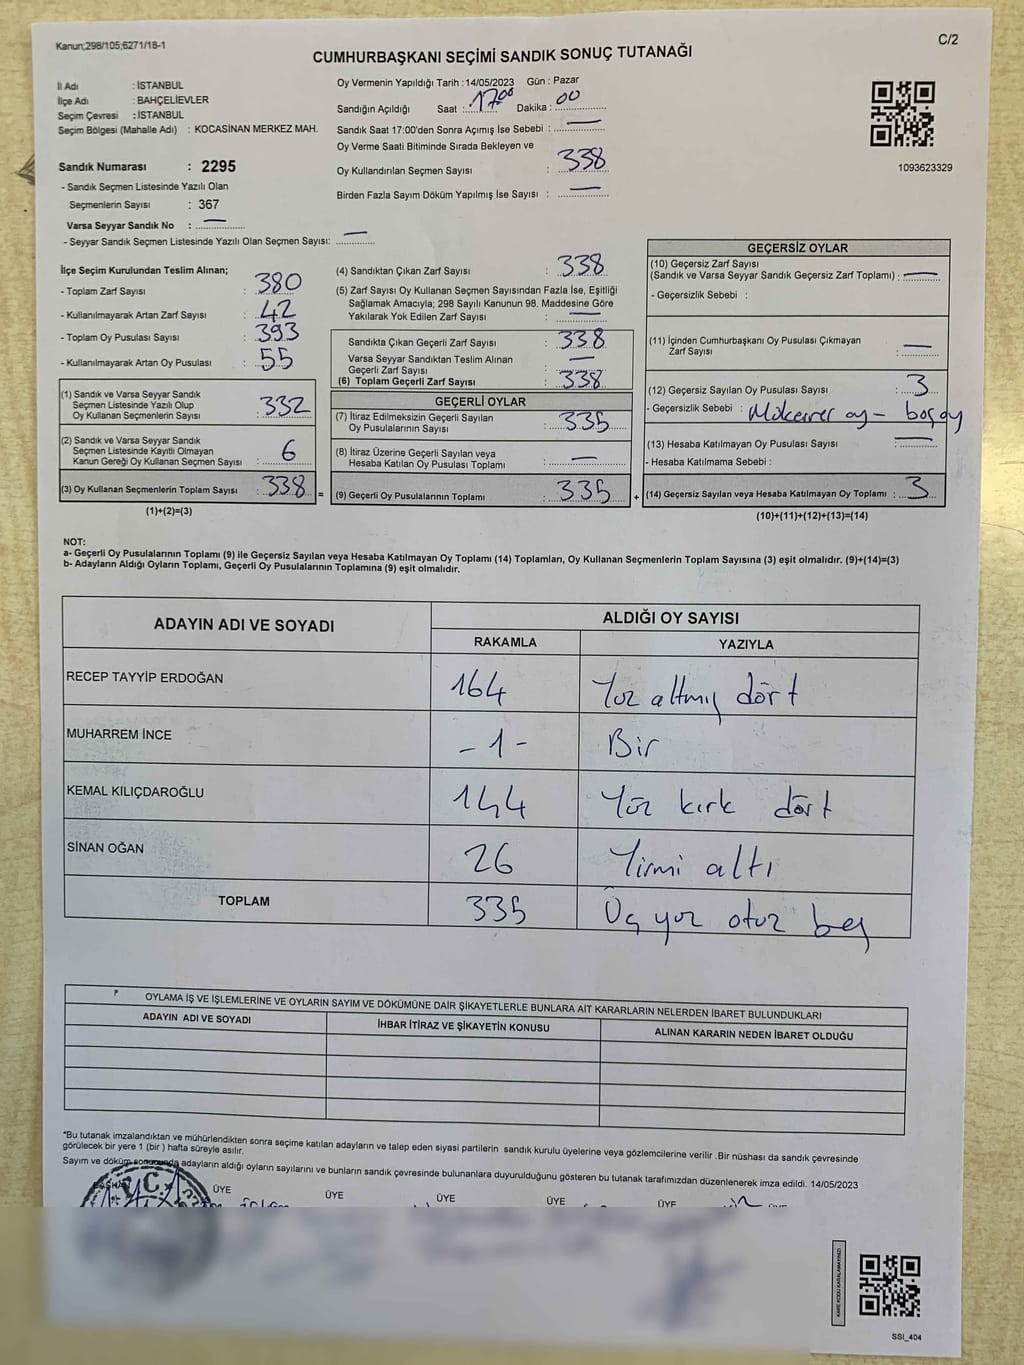 Kanun;298/105;6271/18-1
C/2
CUMHURBAŞKANI SEÇİMİ SANDIK SONUÇ TUTANAĞI
İl Adı : İSTANBUL
İlçe Adı : BAHÇELİEVLER
Seçim Çevresi : İSTANBUL
Seçim Bölgesi (Mahalle Adı) : KOCASİNAN MERKEZ MAH.
Sandık Numarası : 2295
- Sandık Seçmen Listesinde Yazılı Olan
Seçmenlerin Sayısı : 367
Varsa Seyyar Sandık No : —
- Seyyar Sandık Seçmen Listesinde Yazılı Olan Seçmen Sayısı: —
Oy Vermenin Yapıldığı Tarih :14/05/2023 Gün : Pazar
Sandığın Açıldığı Saat : 17⁰⁰ Dakika : 00
Sandık Saat 17:00'den Sonra Açımış İse Sebebi : —
Oy Verme Saati Bitiminde Sırada Bekleyen ve
Oy Kullandırılan Seçmen Sayısı : 338
Birden Fazla Sayım Döküm Yapılmış İse Sayısı : —
1093623329
İlçe Seçim Kurulundan Teslim Alınan;
- Toplam Zarf Sayısı : 380
- Kullanılmayarak Artan Zarf Sayısı : 42
- Toplam Oy Pusulası Sayısı : 393
- Kullanılmayarak Artan Oy Pusulası : 55
(1) Sandık ve Varsa Seyyar Sandık
Seçmen Listesinde Yazılı Olup
Oy Kullanan Seçmenlerin Sayısı : 332
(2) Sandık ve Varsa Seyyar Sandık
Seçmen Listesinde Kayıtlı Olmayan
Kanun Gereği Oy Kullanan Seçmen Sayısı : 6
(3) Oy Kullanan Seçmenlerin Toplam Sayısı : 338 =
(1)+(2)=(3)
(4) Sandıktan Çıkan Zarf Sayısı : 338
(5) Zarf Sayısı Oy Kullanan Seçmen Sayısından Fazla İse, Eşitliği
Sağlamak Amacıyla; 298 Sayılı Kanunun 98. Maddesine Göre
Yakılarak Yok Edilen Zarf Sayısı : —
Sandıkta Çıkan Geçerli Zarf Sayısı : 338
Varsa Seyyar Sandıktan Teslim Alınan
Geçerli Zarf Sayısı : —
(6) Toplam Geçerli Zarf Sayısı : 338
GEÇERLİ OYLAR
(7) İtiraz Edilmeksizin Geçerli Sayılan
Oy Pusulalarının Sayısı : 335
(8) İtiraz Üzerine Geçerli Sayılan veya
Hesaba Katılan Oy Pusulası Toplamı : —
(9) Geçerli Oy Pusulalarının Toplamı : 335 +
GEÇERSİZ OYLAR
(10) Geçersiz Zarf Sayısı
(Sandık ve Varsa Seyyar Sandık Geçersiz Zarf Toplamı) : —
- Geçersizlik Sebebi :
(11) İçinden Cumhurbaşkanı Oy Pusulası Çıkmayan
Zarf Sayısı : —
(12) Geçersiz Sayılan Oy Pusulası Sayısı : 3
- Geçersizlik Sebebi : Mükerrer oy - boş oy
(13) Hesaba Katılmayan Oy Pusulası Sayısı : —
- Hesaba Katılmama Sebebi :
(14) Geçersiz Sayılan veya Hesaba Katılmayan Oy Toplamı : 3
(10)+(11)+(12)+(13)=(14)
NOT:
a- Geçerli Oy Pusulalarının Toplamı (9) ile Geçersiz Sayılan veya Hesaba Katılmayan Oy Toplamı (14) Toplamları, Oy Kullanan Seçmenlerin Toplam Sayısına (3) eşit olmalıdır. (9)+(14)=(3)
b- Adayların Aldığı Oyların Toplamı, Geçerli Oy Pusulalarının Toplamına (9) eşit olmalıdır.
ADAYIN ADI VE SOYADI
ALDIĞI OY SAYISI
RAKAMLA YAZIYLA
RECEP TAYYİP ERDOĞAN 164 Yüz altmış dört
MUHARREM İNCE - 1 - Bir
KEMAL KILIÇDAROĞLU 144 Yüz kırk dört
SİNAN OĞAN 26 Yirmi altı
TOPLAM 335 Üç yüz otuz beş
OYLAMA İŞ VE İŞLEMLERİNE VE OYLARIN SAYIM VE DÖKÜMÜNE DAİR ŞİKAYETLERLE BUNLARA AİT KARARLARIN NELERDEN İBARET BULUNDUKLARI
ADAYIN ADI VE SOYADI İHBAR İTİRAZ VE ŞİKAYETİN KONUSU ALINAN KARARIN NEDEN İBARET OLDUĞU
*Bu tutanak imzalandıktan ve mühürlendikten sonra seçime katılan adayların ve talep eden siyasi partilerin sandık kurulu üyelerine veya gözlemcilerine verilir .Bir nüshası da sandık çevresinde
görülecek bir yere 1 (bir ) hafta süreyle asılır.
Sayım ve döküm sonucunda adayların aldığı oyların sayılarını ve bunların sandık çevresinde bulunanlara duyurulduğunu gösteren bu tutanak tarafımızdan düzenlenerek imza edildi. 14/05/2023
ÜYE ÜYE ÜYE ÜYE ÜYE ÜYE
SSI_404